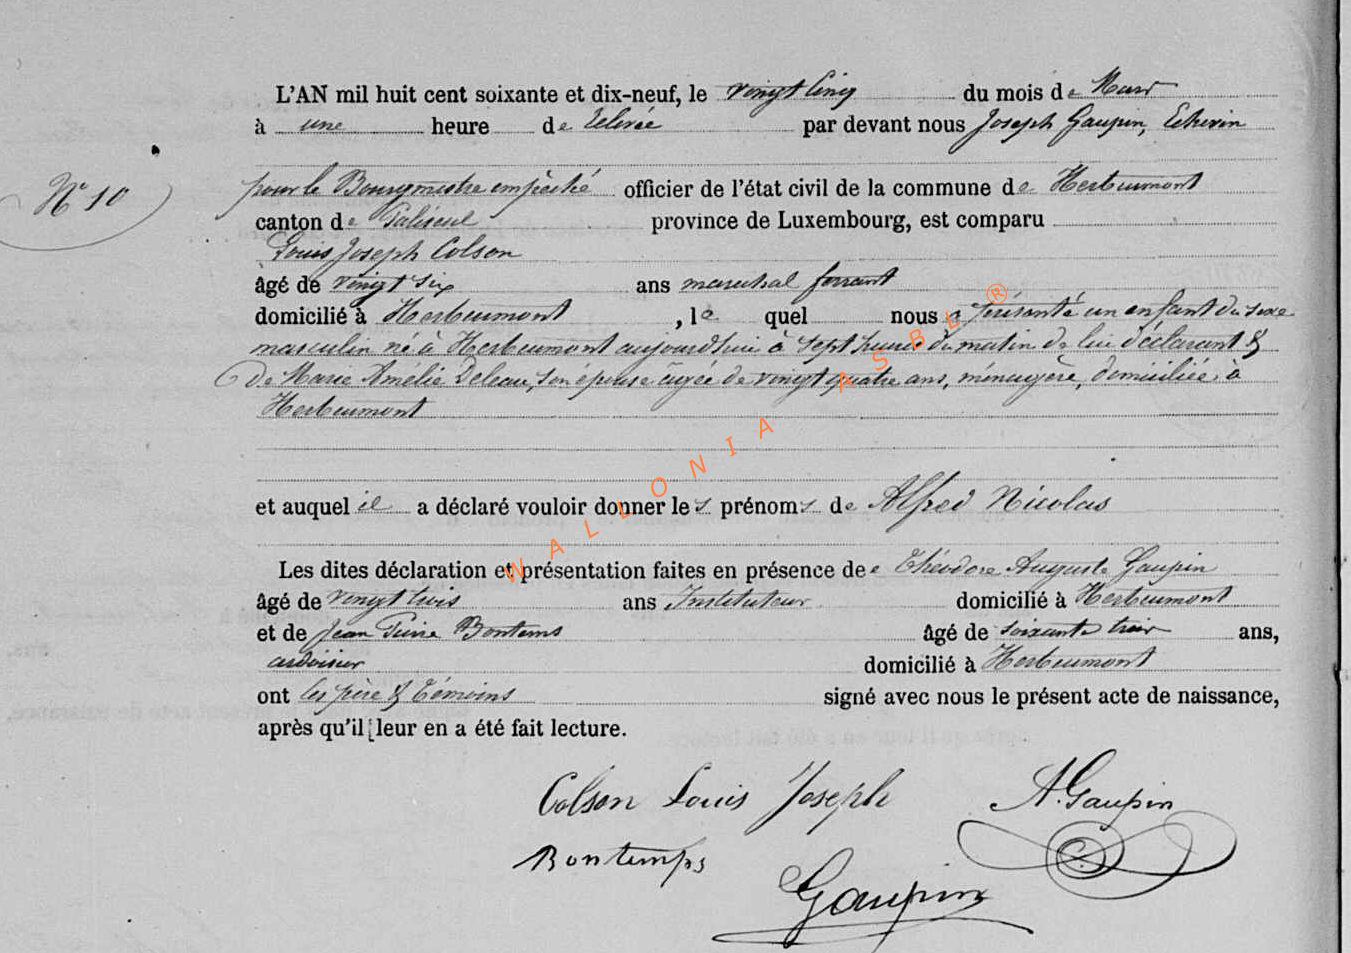 L'AN mil huit cent soixante et dix-neuf, le vingt cinq du mois de Mars
à une heure de relevée par devant nous Joseph Gaupin, Echevin
N° 10
pour le Bourgmestre empêché officier de l'état civil de la commune de Herbeumont
canton de Paliseul province de Luxembourg, est comparu
Louis Joseph Colson
âgé de vingt six ans marechal ferrant
domicilié à Herbeumont , le quel nous a présenté un enfant du sexe
masculin né à Herbeumont aujourd'hui à sept heures du matin de lui déclarant &
de Marie Amélie Deleau, son épouse âgée de vingt quatre ans, ménagère, domiciliée à
Herbeumont
et auquel il a déclaré vouloir donner les prénoms de Alfred Nicolas
Les dites déclaration et présentation faites en présence de Théodore Auguste Gaupin
âgé de vingt trois ans Instituteur domicilié à Herbeumont
et de Jean Pierre Bontems âgé de soixante trois ans,
ardoisier domicilié à Herbeumont
ont les père & témoins signé avec nous le présent acte de naissance,
après qu'il leur en a été fait lecture.
Colson Louis Joseph A. Gaupin
Bontemps
Gaupin
WALLONIA ASBL ®